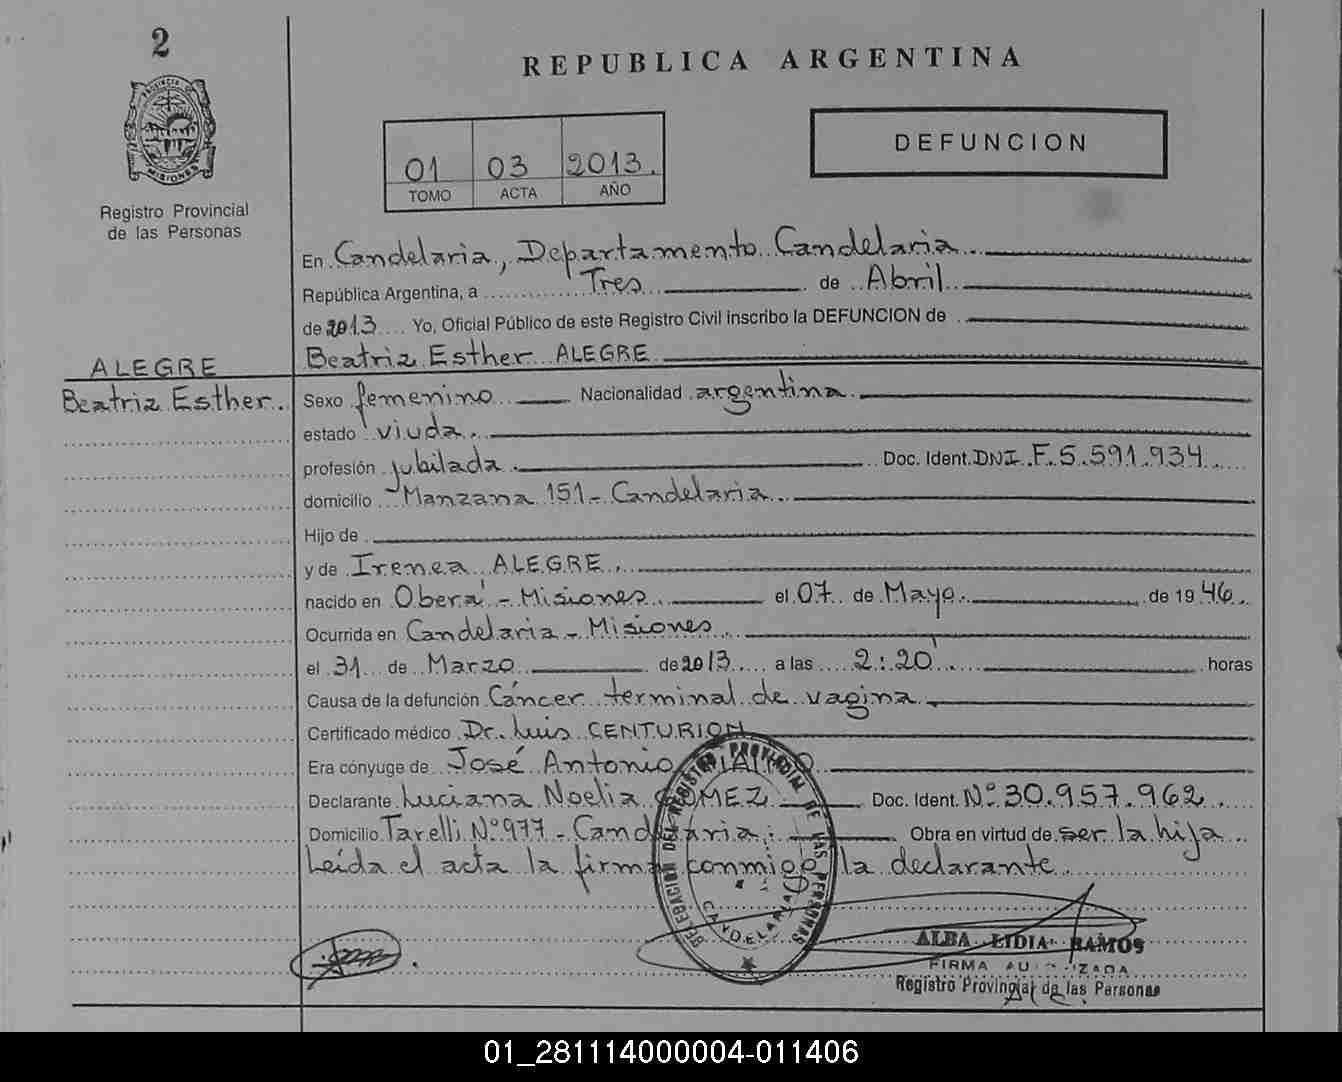 2
PROVINCIA DE
MISIONES
Registro Provincial
de las Personas
REPUBLICA ARGENTINA
01 03 2013.
TOMO ACTA AÑO
DEFUNCION
En Candelaria, Departamento Candelaria
República Argentina, a Tres de Abril
de 2013 Yo, Oficial Público de este Registro Civil inscribo la DEFUNCION de
Beatriz Esther ALEGRE
ALEGRE
Beatriz Esther.
Sexo femenino Nacionalidad argentina
estado viuda.
profesión jubilada. Doc. Ident. DNI F. 5.591.934
domicilio Manzana 151 - Candelaria
Hijo de
y de Irenea ALEGRE.
nacido en Oberá - Misiones el 07 de Mayo. de 1946.
Ocurrida en Candelaria - Misiones
el 31 de Marzo de 2013 a las 2:20' horas
Causa de la defunción Cáncer terminal de vagina.
Certificado médico Dr. Luis CENTURION
Era cónyuge de José Antonio
Declarante Luciana Noelia GOMEZ Doc. Ident. Nº 30.957.962.
Domicilio Tarelli Nº 977 - Candelaria. Obra en virtud de ser la hija
Leída el acta la firma conmigo la declarante.
DELEGACION DEL REGISTRO PROVINCIAL DE LAS PERSONAS
CANDELARIA
ALBA LIDIA RAMOS
FIRMA AUTORIZADA
Registro Provincial de las Personas
01_281114000004-011406